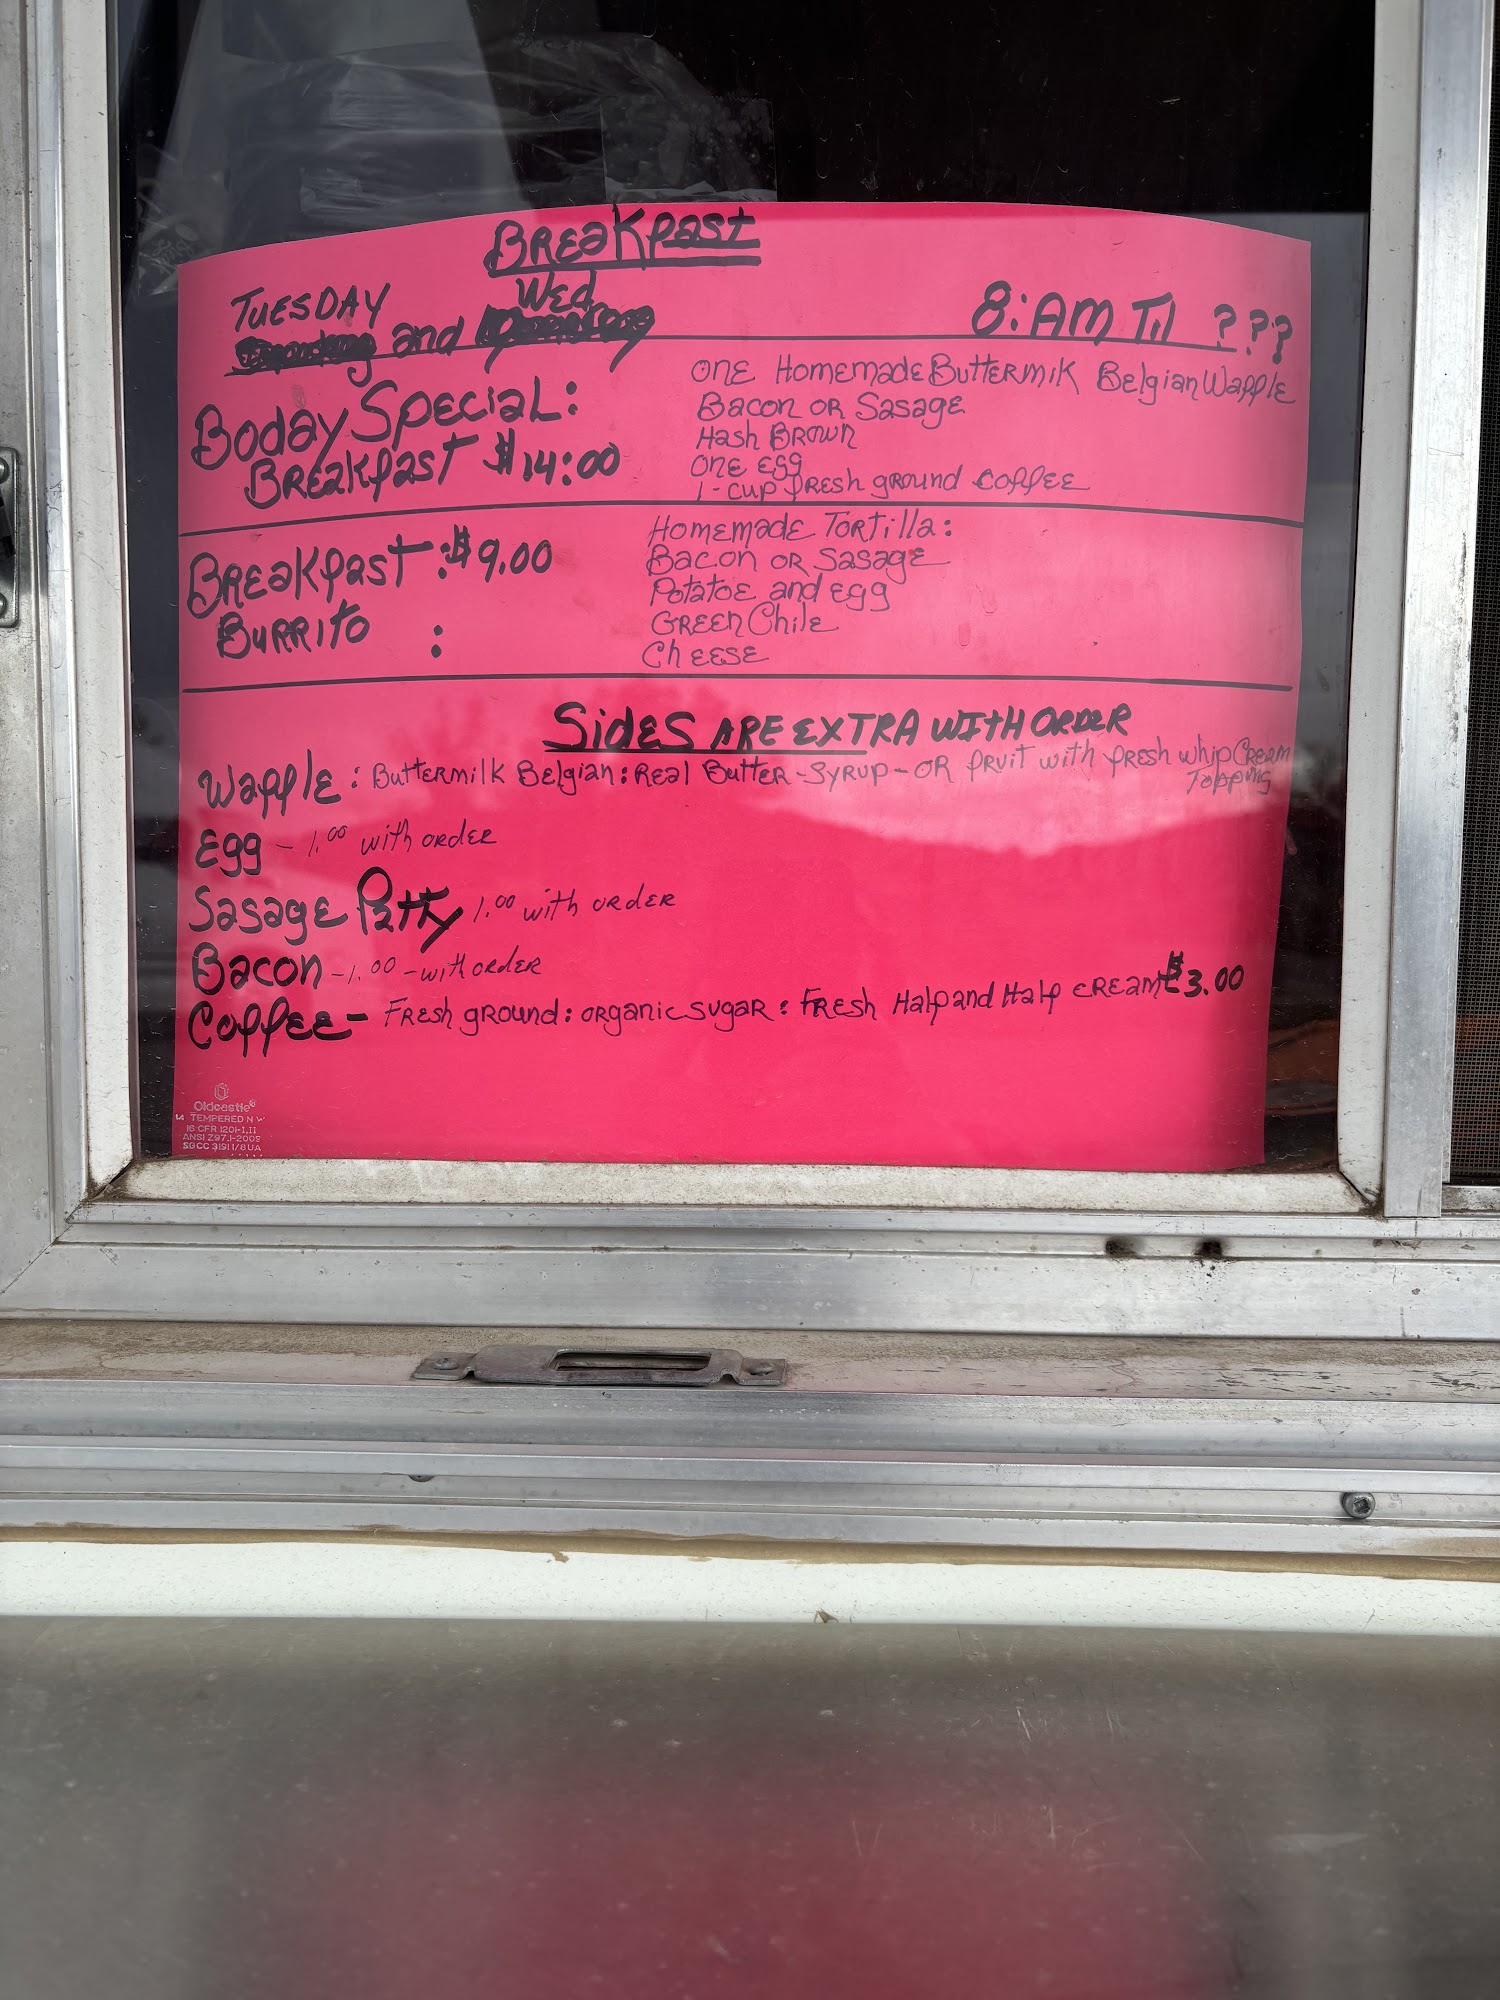 Breakfast
Tuesday and Wed
8:AM Til ???
Boday Special:
Breakfast $14:00
One Homemade Buttermik Belgian Waffle
Bacon or Sasage
Hash Brown
One Egg
1-cup fresh ground coffee
Breakfast :$9.00
Burrito :
Homemade Tortilla:
Bacon or Sasage
Potatoe and Egg
Green Chile
Cheese
Sides ARE EXTRA WITH ORDER
Waffle: Buttermilk Belgian: Real Butter-Syrup-OR fruit with fresh whip Cream
Topping
Egg - 1.00 with order
Sasage Patty 1.00 with order
Bacon -1.00 -with order
Coffee- Fresh ground: organic sugar: Fresh Half and Half cream $3.00
Oldcastle
TEMPERED
16 CFR 1201-1,11
ANSI Z97.1-2009
SGCC 3191 1/8UA